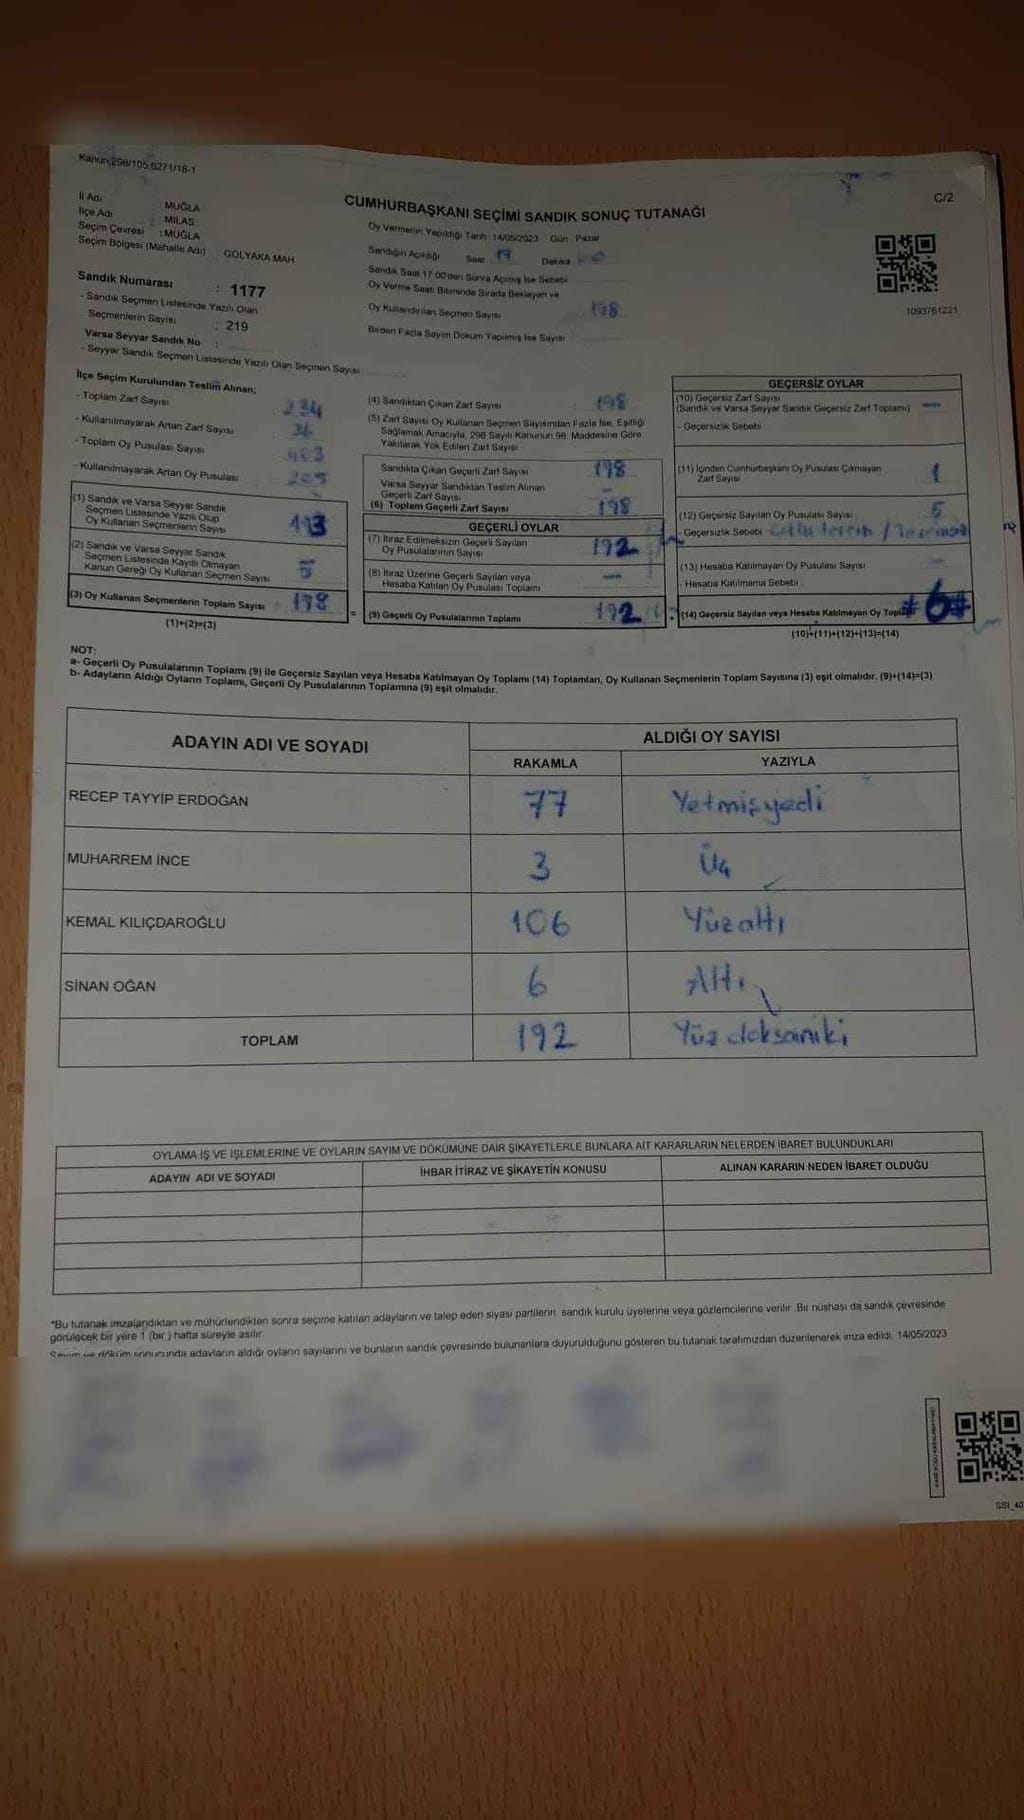 Kanun:298/105;6271/18-1
C/2
CUMHURBAŞKANI SEÇİMİ SANDIK SONUÇ TUTANAĞI
İl Adı : MUĞLA
İlçe Adı : MİLAS
Seçim Çevresi : MUĞLA
Seçim Bölgesi (Mahalle Adı) : GÖLYAKA MAH
Oy Vermenin Yapıldığı Tarih: 14/05/2023 Gün: Pazar
Sandığın Açıldığı Saat Dakika
Sandık Saat 17:00'den Sonra Açılmış İse Sebebi
Oy Verme Saati Bitiminde Sırada Bekleyen ve
Oy Kullandırılan Seçmen Sayısı 198
Birden Fazla Sayım Döküm Yapılmış İse Sayısı
1093761221
Sandık Numarası : 1177
- Sandık Seçmen Listesinde Yazılı Olan
Seçmenlerin Sayısı : 219
Varsa Seyyar Sandık No :
- Seyyar Sandık Seçmen Listesinde Yazılı Olan Seçmen Sayısı
İlçe Seçim Kurulundan Teslim Alınan;
- Toplam Zarf Sayısı 234
- Kullanılmayarak Artan Zarf Sayısı 36
- Toplam Oy Pusulası Sayısı
- Kullanılmayarak Artan Oy Pusulası 205
(1) Sandık ve Varsa Seyyar Sandık
Seçmen Listesinde Yazılı Olup
Oy Kullanan Seçmenlerin Sayısı 193
(2) Sandık ve Varsa Seyyar Sandık
Seçmen Listesinde Kayıtlı Olmayan
Kanun Gereği Oy Kullanan Seçmen Sayısı 5
(3) Oy Kullanan Seçmenlerin Toplam Sayısı 198
(1)+(2)=(3)
=
(4) Sandıktan Çıkan Zarf Sayısı 198
(5) Zarf Sayısı Oy Kullanan Seçmen Sayısından Fazla İse, Eşitliği
Sağlamak Amacıyla, 298 Sayılı Kanunun 98. Maddesine Göre
Yakılarak Yok Edilen Zarf Sayısı
Sandıkta Çıkan Geçerli Zarf Sayısı 198
Varsa Seyyar Sandıktan Teslim Alınan
Geçerli Zarf Sayısı -
(6) Toplam Geçerli Zarf Sayısı 198
GEÇERLİ OYLAR
(7) İtiraz Edilmeksizin Geçerli Sayılan
Oy Pusulalarının Sayısı 192
(8) İtiraz Üzerine Geçerli Sayılan veya
Hesaba Katılan Oy Pusulası Toplamı -
(9) Geçerli Oy Pusulalarının Toplamı 192
+
GEÇERSİZ OYLAR
(10) Geçersiz Zarf Sayısı
(Sandık ve Varsa Seyyar Sandık Geçersiz Zarf Toplamı) -
- Geçersizlik Sebebi
(11) İçinden Cumhurbaşkanı Oy Pusulası Çıkmayan
Zarf Sayısı 1
(12) Geçersiz Sayılan Oy Pusulası Sayısı 5
- Geçersizlik Sebebi
(13) Hesaba Katılmayan Oy Pusulası Sayısı -
- Hesaba Katılmama Sebebi
(14) Geçersiz Sayılan veya Hesaba Katılmayan Oy Toplamı #6#
(10)+(11)+(12)+(13)=(14)
NOT:
a- Geçerli Oy Pusulalarının Toplamı (9) ile Geçersiz Sayılan veya Hesaba Katılmayan Oy Toplamı (14) Toplamları, Oy Kullanan Seçmenlerin Toplam Sayısına (3) eşit olmalıdır. (9)+(14)=(3)
b- Adayların Aldığı Oyların Toplamı, Geçerli Oy Pusulalarının Toplamına (9) eşit olmalıdır.
ADAYIN ADI VE SOYADI ALDIĞI OY SAYISI
RAKAMLA YAZIYLA
RECEP TAYYİP ERDOĞAN 77 Yetmişyedi
MUHARREM İNCE 3 Üç
KEMAL KILIÇDAROĞLU 106 Yüzaltı
SİNAN OĞAN 6 Altı
TOPLAM 192 Yüz doksaniki
OYLAMA İŞ VE İŞLEMLERİNE VE OYLARIN SAYIM VE DÖKÜMÜNE DAİR ŞİKAYETLERLE BUNLARA AİT KARARLARIN NELERDEN İBARET BULUNDUKLARI
ADAYIN ADI VE SOYADI İHBAR İTİRAZ VE ŞİKAYETİN KONUSU ALINAN KARARIN NEDEN İBARET OLDUĞU
*Bu tutanak imzalandıktan ve mühürlendikten sonra seçime katılan adayların ve talep eden siyasi partilerin sandık kurulu üyelerine veya gözlemcilerine verilir. Bir nüshası da sandık çevresinde
görülecek bir yere 1 (bir) hafta süreyle asılır.
Seçim ve döküm sonucunda adayların aldığı oyların sayılarını ve bunların sandık çevresinde bulunanlara duyurulduğunu gösteren bu tutanak tarafımızdan düzenlenerek imza edildi. 14/05/2023
SSI_40